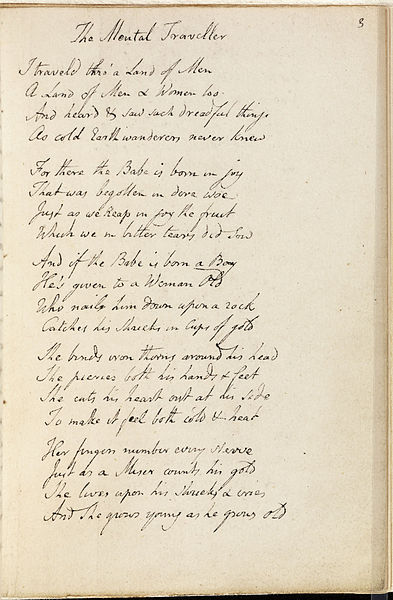 3
The Mental Traveller
I traveld thro' a Land of Men
A Land of Men & Women too
And heard & saw such dreadful things
As cold Earth wanderers never knew
For there the Babe is born in joy
That was begotten in dire woe
Just as we Reap in joy the fruit
Which we in bitter tears did Sow
And if the Babe is born a Boy
He's given to a Woman Old
Who nails him down upon a rock
Catches his Shrieks in Cups of gold
She binds iron thorns around his head
She pierces both his hands & feet
She cuts his heart out at his Side
To make it feel both cold & heat
Her fingers number every Nerve
Just as a Miser counts his gold
She lives upon his Shrieks & cries
And She grows young as he grows old